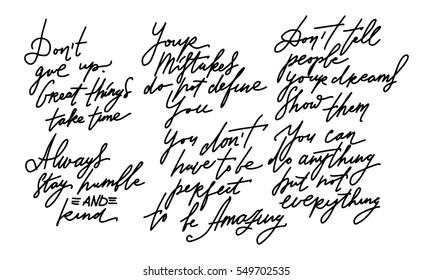 Don't
give up.
Great things
take time
Always
stay humble
AND
kind
Your
Mistakes
do not define
You
You don't
have to be
perfect
to be Amazing
Don't tell
people
your dreams
Show them
You can
do anything
but not
everything
shutterstock.com · 549702535